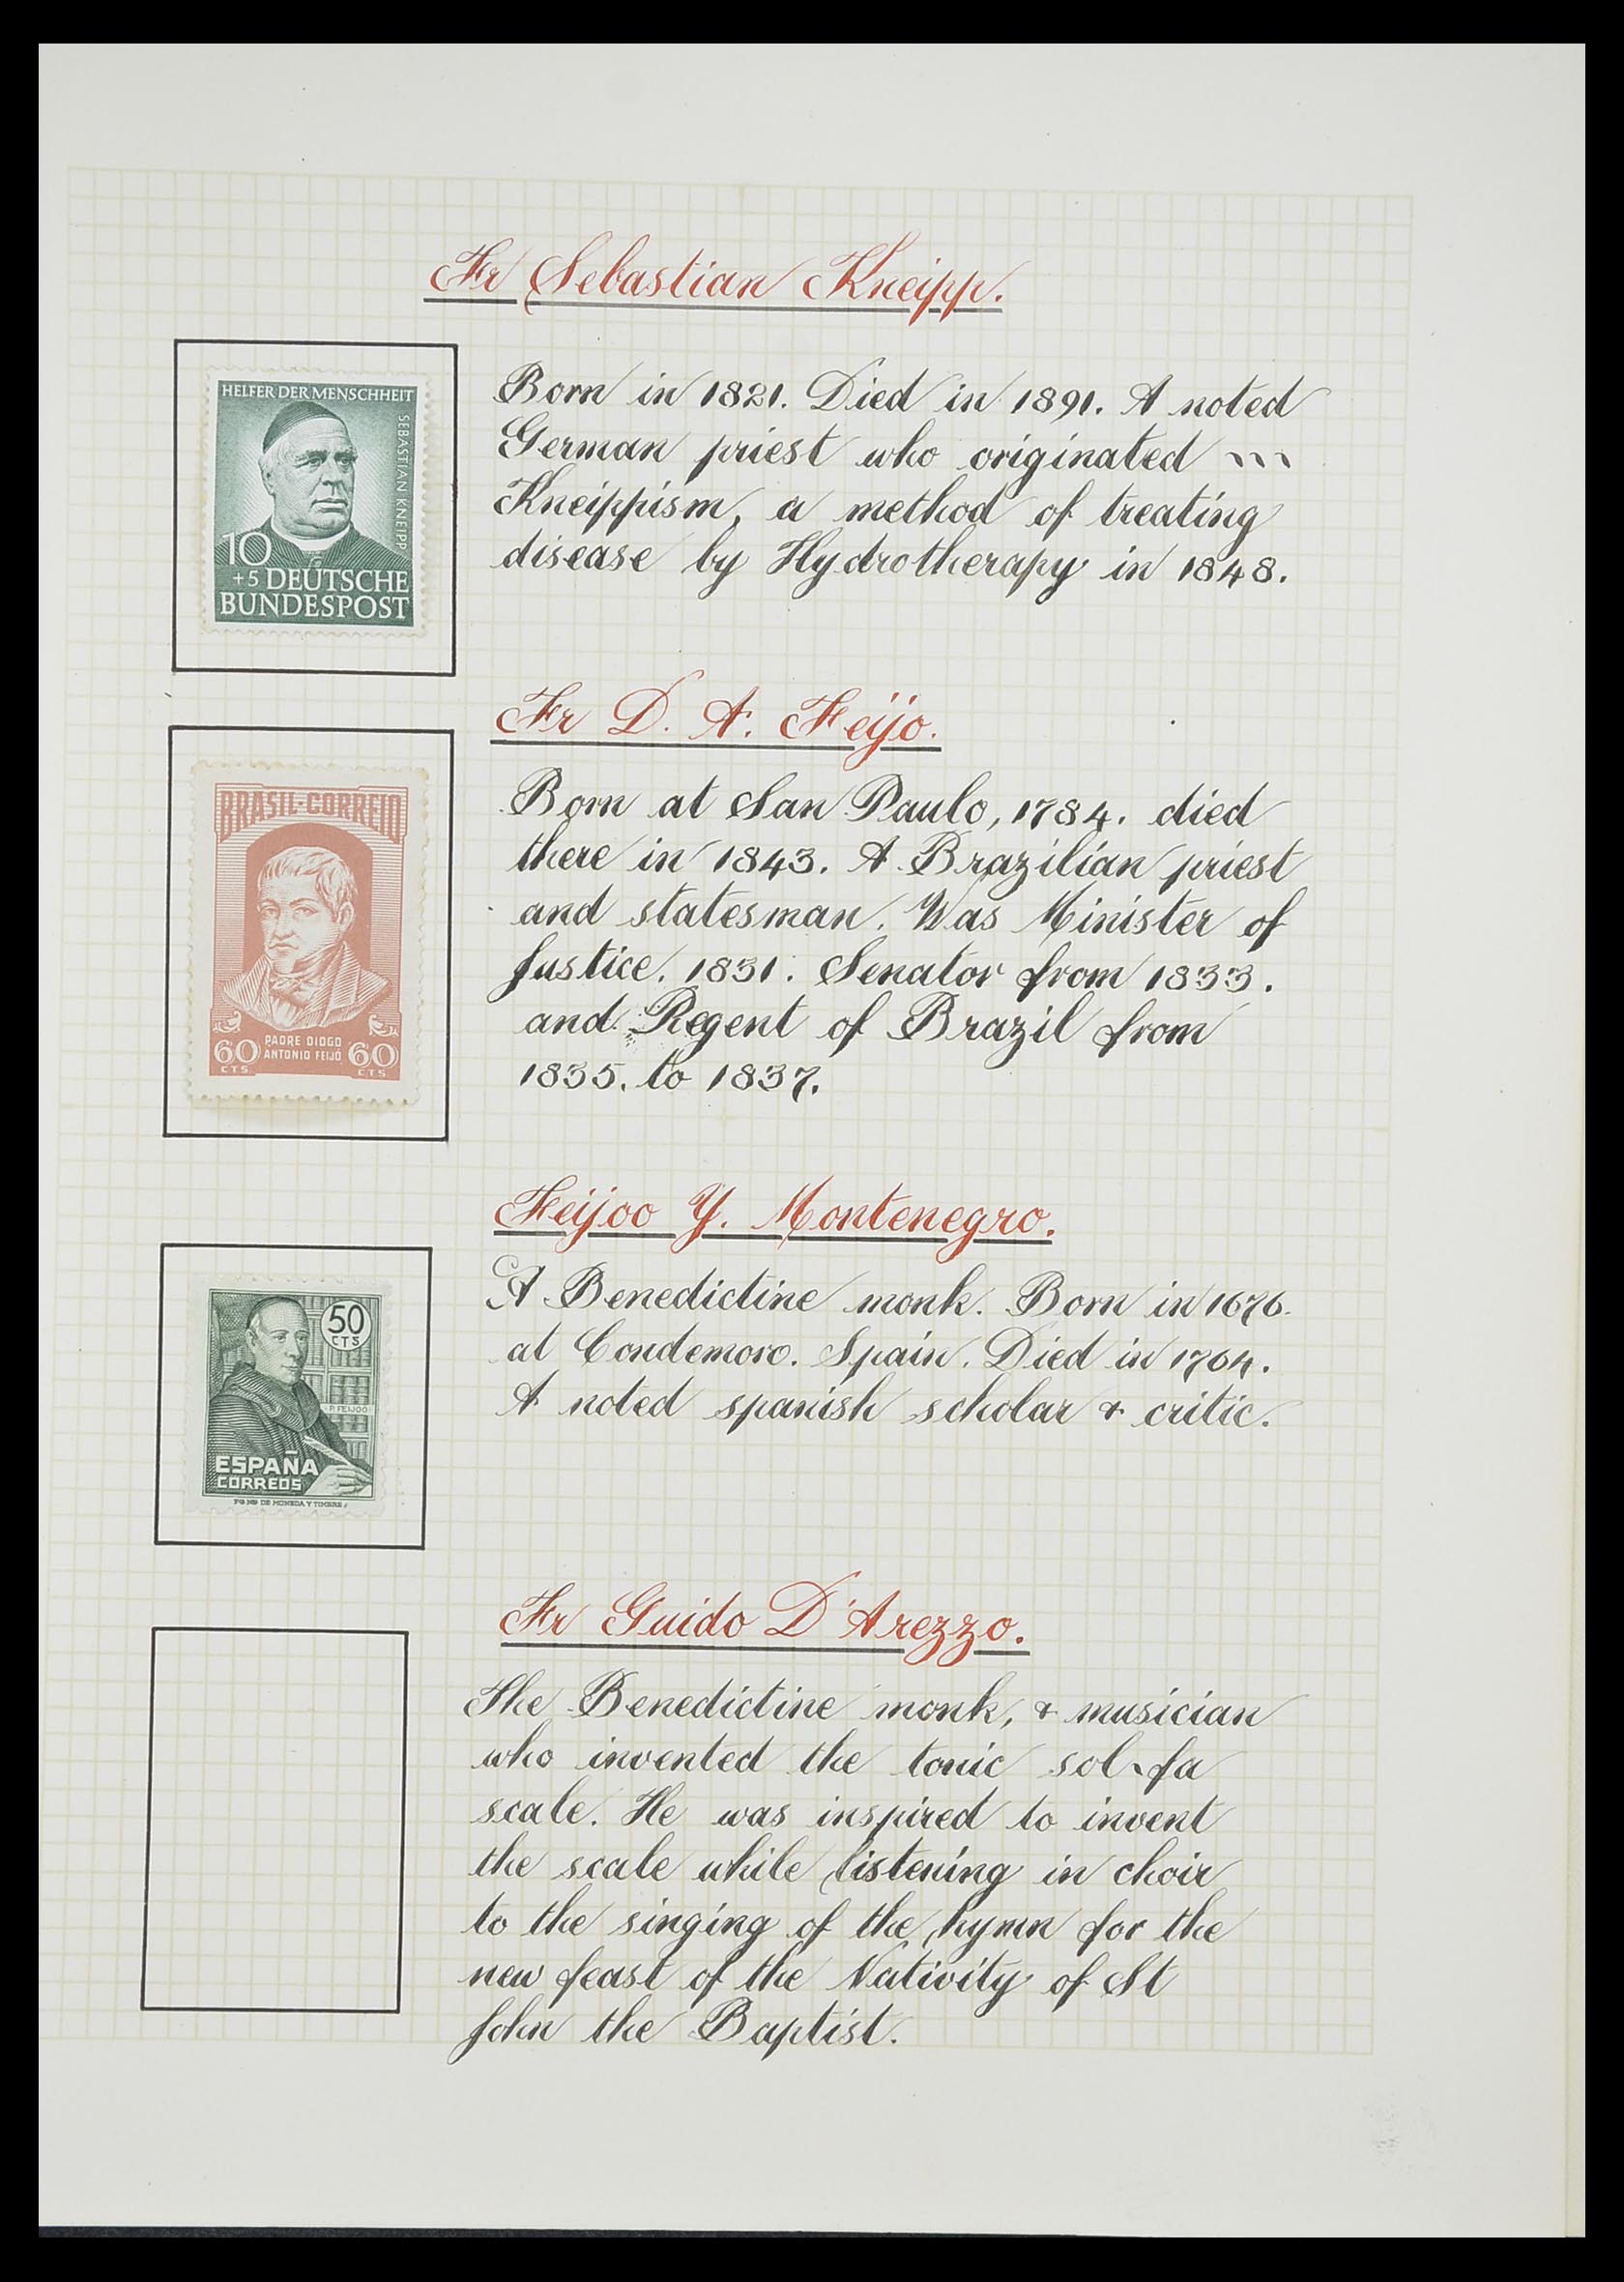 Fr Sebastian Kneipp.
HELFER DER MENSCHHEIT
SEBASTIAN KNEIPP
10
+5 DEUTSCHE
BUNDESPOST
Born in 1821. Died in 1891. A noted
German priest who originated
Kneippism, a method of treating
disease by Hydrotherapy in 1848.
Fr D. A. Feijo.
BRASIL-CORREIO
60 CTS
PADRE DIOGO
ANTONIO FEIJÓ
60 CTS
Born at San Paulo, 1784. died
there in 1843. A Brazilian priest
and statesman. Was Minister of
Justice. 1831. Senator from 1833.
and Regent of Brazil from
1835. to 1837.
Feijoo Y. Montenegro.
50
CTS
P. FEIJOO
ESPAÑA
CORREOS
DE MONEDA Y TIMBRE
A Benedictine monk. Born in 1676.
at Condemoro. Spain. Died in 1764.
A noted spanish scholar & critic.
Fr Guido D'Arezzo.
The Benedictine monk, & musician
who invented the tonic sol-fa
scale. He was inspired to invent
the scale while listening in choir
to the singing of the hymn for the
new feast of the Nativity of St
John the Baptist.